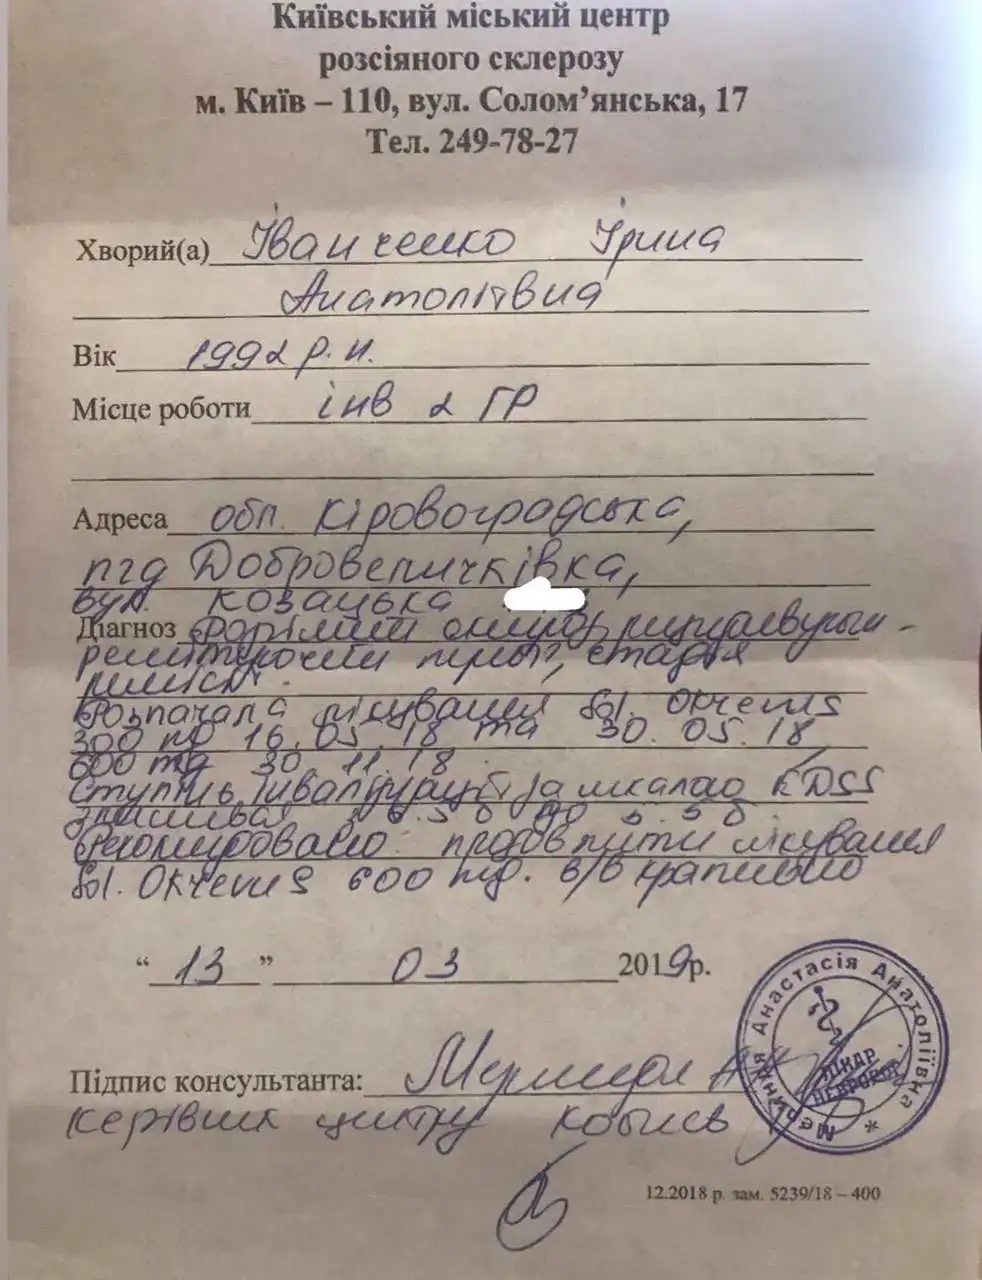 Київський міський центр
розсіяного склерозу
м. Київ – 110, вул. Солом’янська, 17
Тел. 249-78-27
Хворий(а) Іванченко Ірина
Анатоліївна
Вік 1992 р.н.
Місце роботи інв 2 гр
Адреса обл. Кіровоградська,
пгд Добровеличківка,
вул. Козацька
Діагноз
стадія
Розпачала лікування Sol. Окревus
300 mg 16.05.18 та 30.05.18,
600 mg 30.11.18
Ступінь інвалідизації за шкалою EDSS
6.5 до 5.5
Рекомендовано продовжити лікування
Sol. Окревus 600 mg. в/в крапельно
“ 13 ” 03 2019р.
Підпис консультанта:
Керівник центру
Меркидя Анастасія Анатоліївна *
ЛІКАР
НЕВРОЛОГ
12.2018 р. зам. 5239/18 – 400